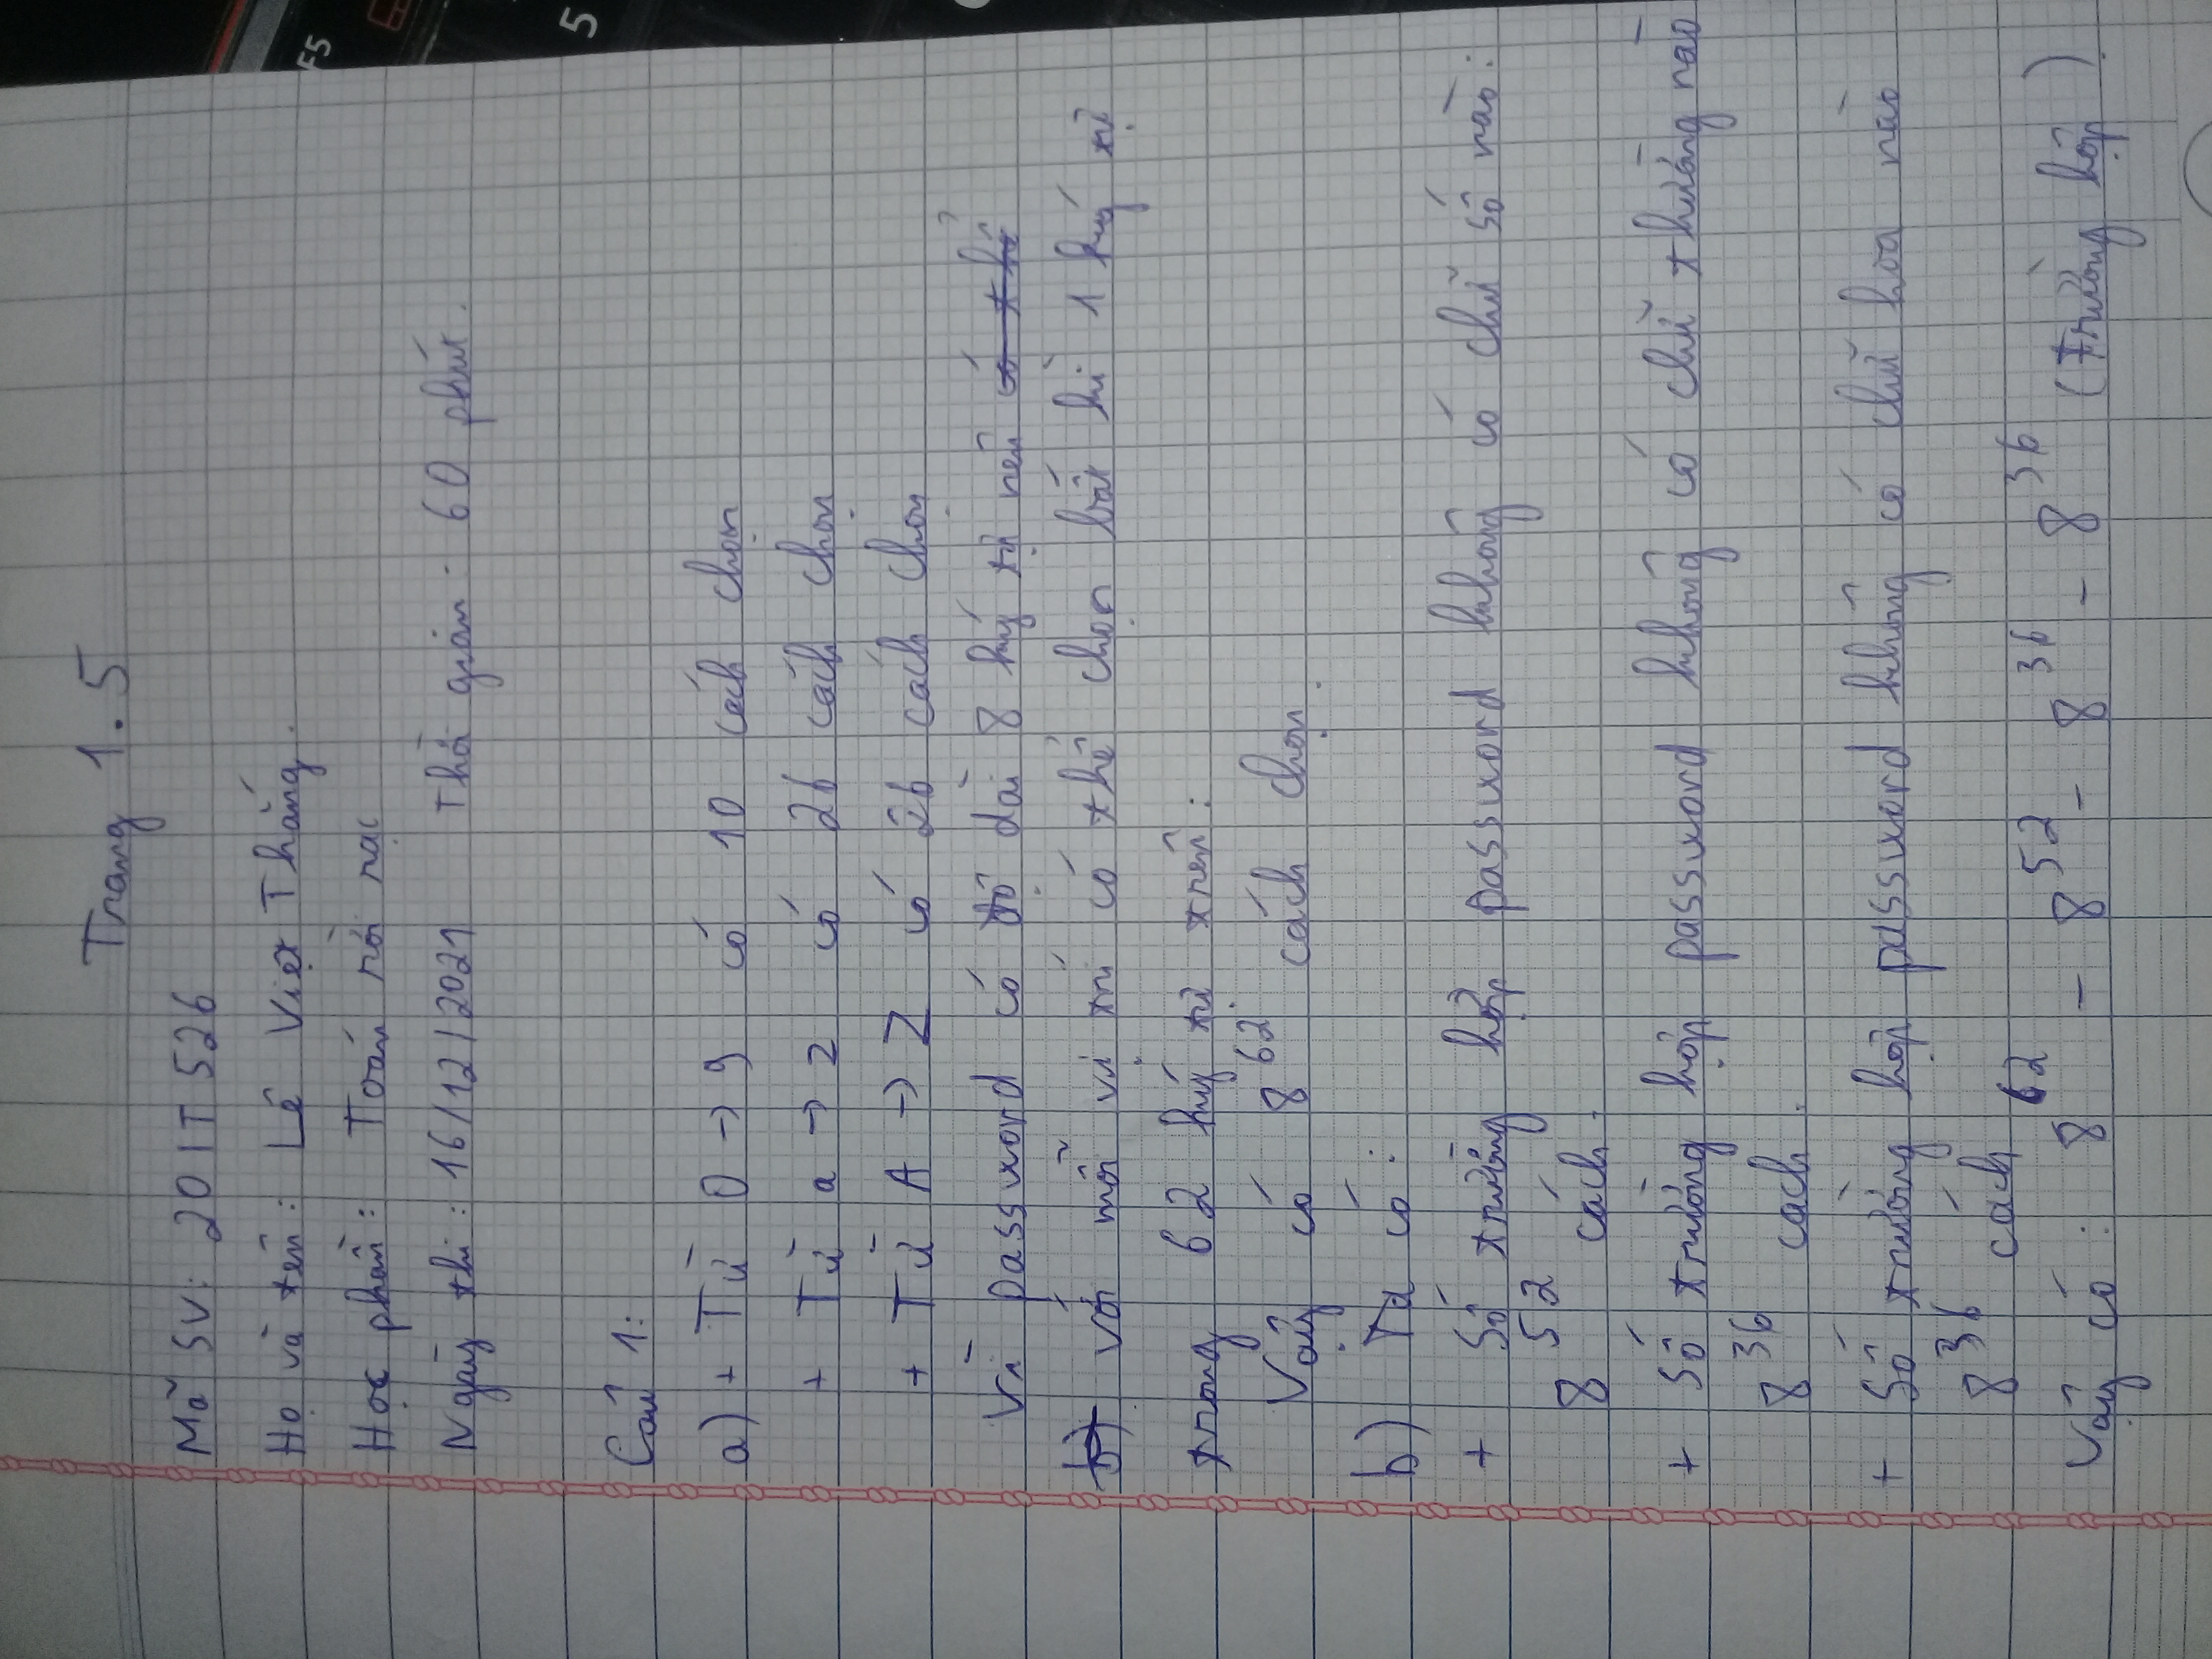 Trang 1.5
Mã SV: 20IT526
Họ và tên: Lê Việt Thắng.
Học phần: Toán rời rạc
Ngày thi: 16/12/2021 Thời gian: 60 phút.
Câu 1:
a) + Từ 0 → 9 có 10 cách chọn
+ Từ a → z có 26 cách chọn
+ Từ A → Z có 26 cách chọn
Vì password có độ dài 8 ký tự nên có thể
b) với mỗi vị trí có thể chọn bất kì 1 ký tự
trong 62 ký tự trên:
Vậy có 8^62 cách chọn
b) Ta có:
+ Số trường hợp password không có chữ số nào:
8^52 cách.
+ Số trường hợp password không có chữ thường nào
8^36 cách.
+ Số trường hợp password không có chữ hoa nào
8^36 cách
Vậy có: 8^62 - 8^52 - 8^36 - 8^36 (trường hợp)
F5
5